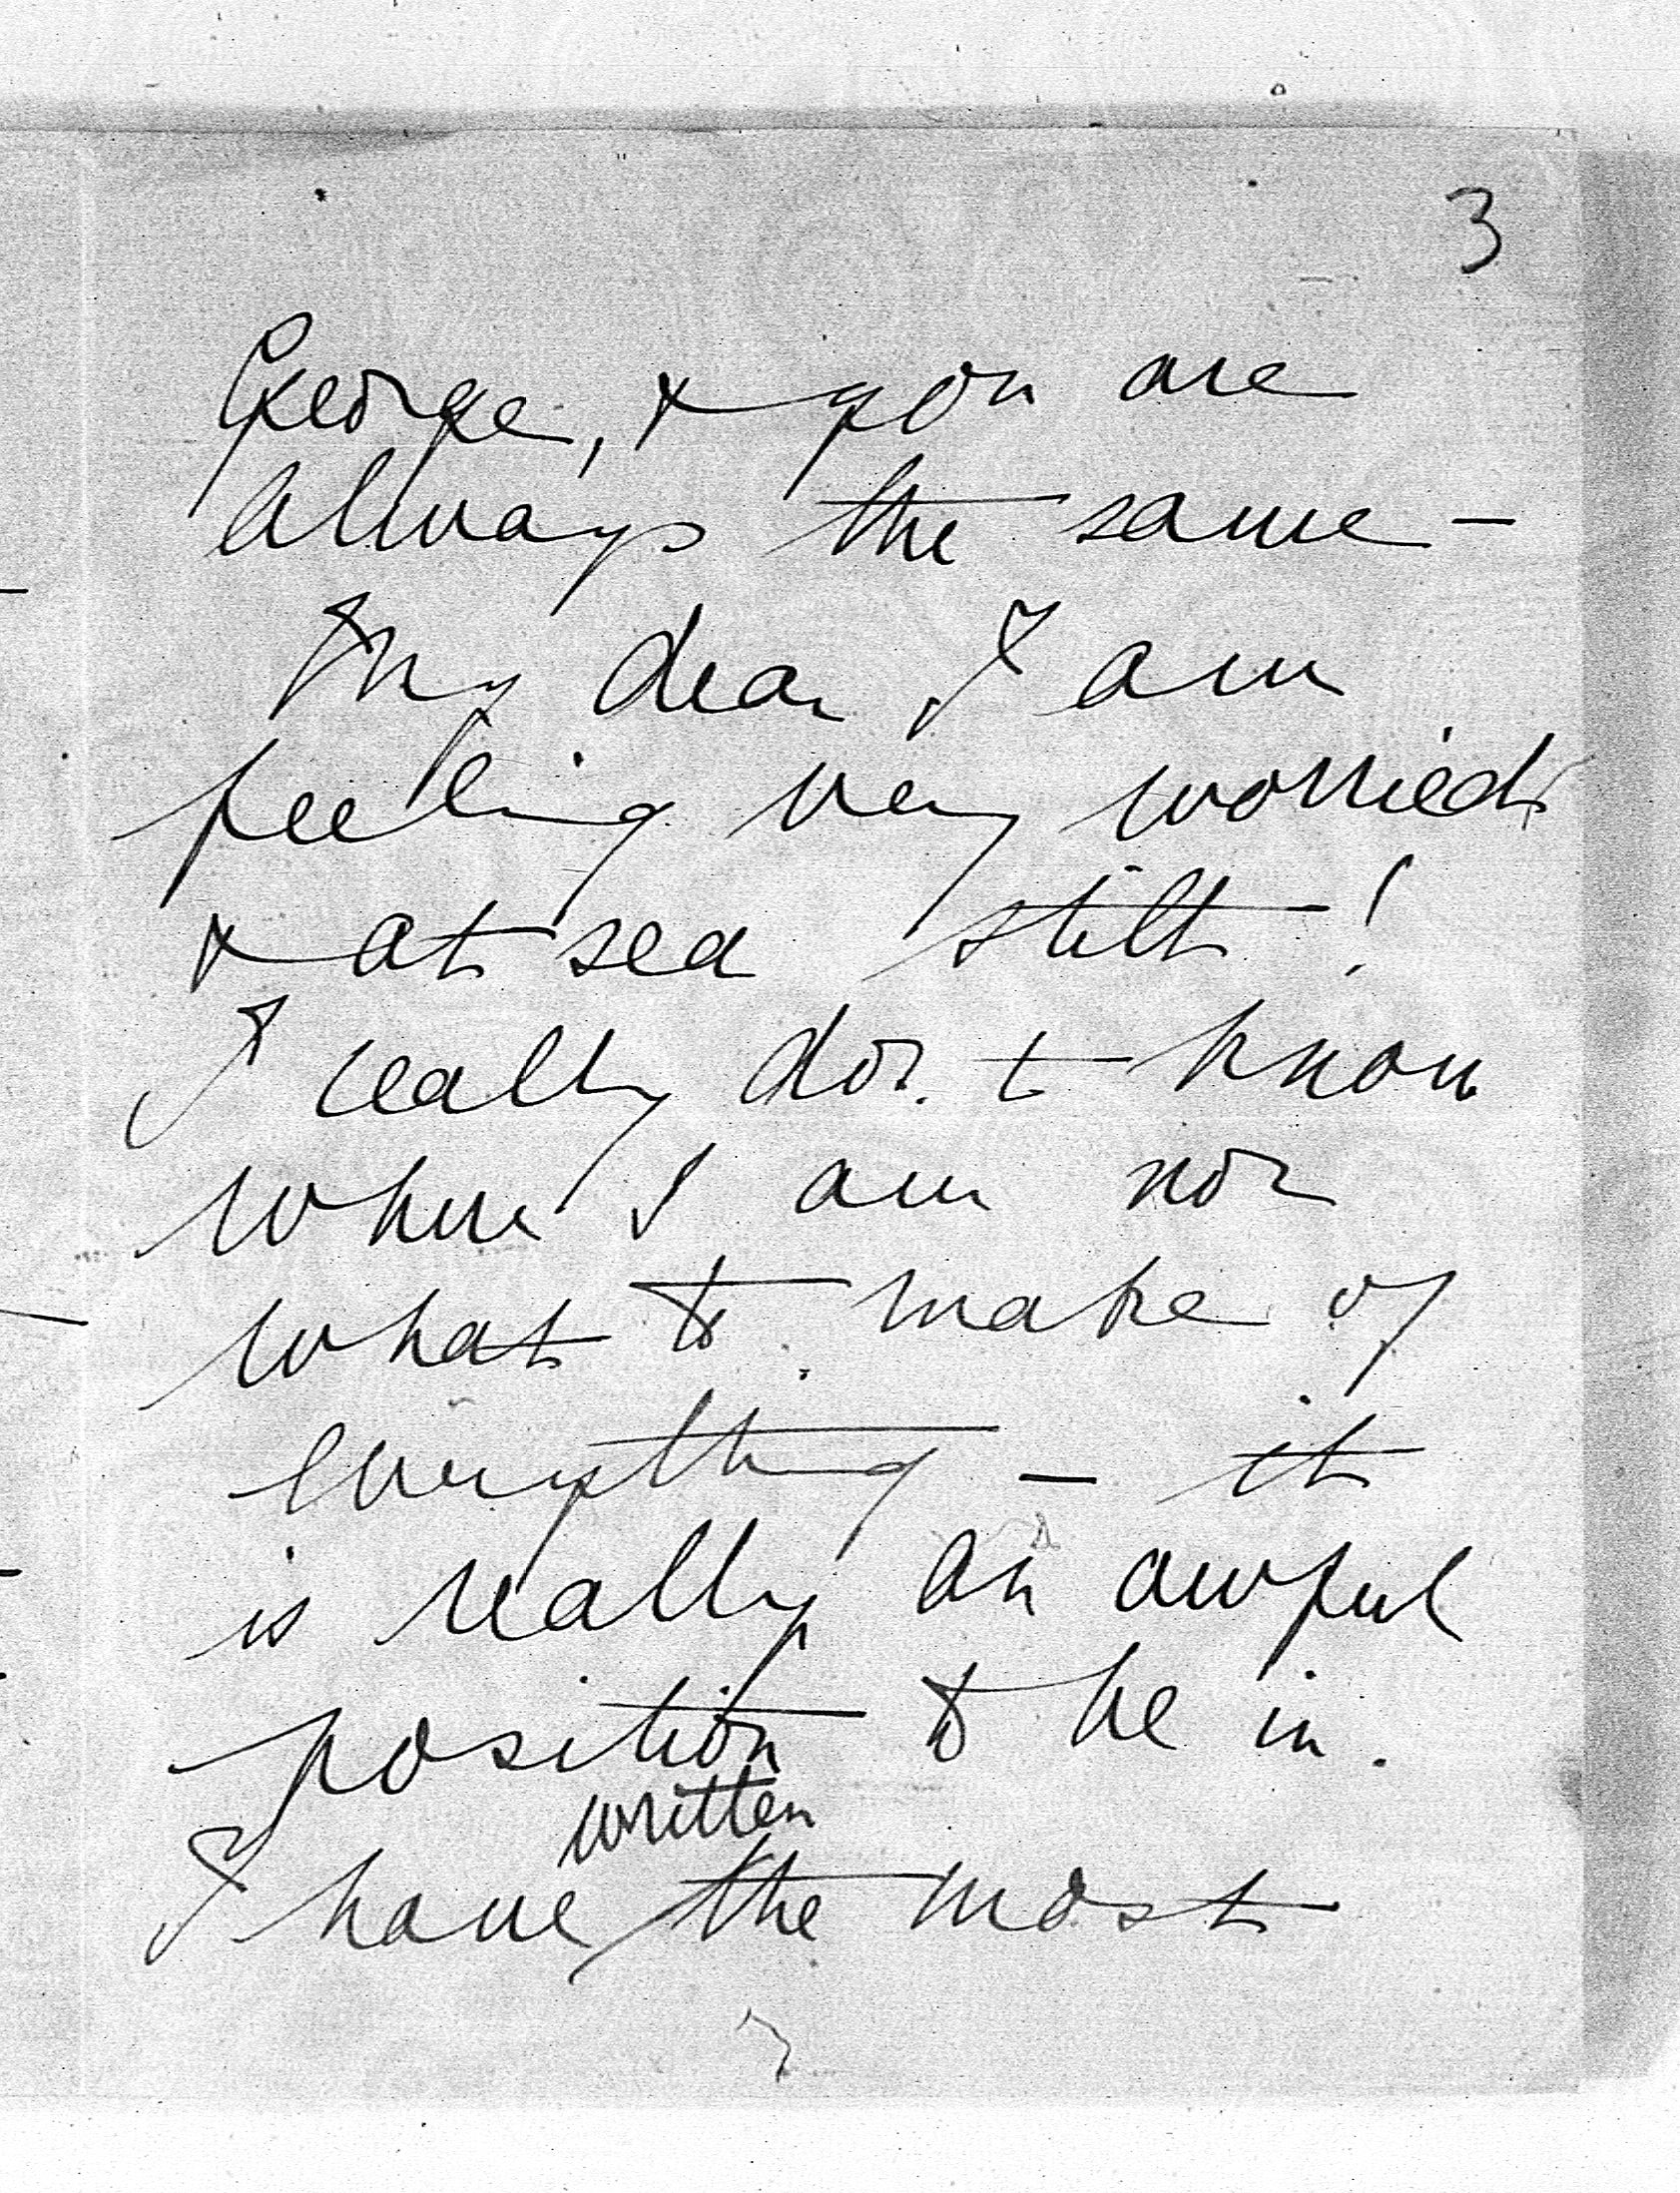 3
George, & you are
always the same –
My dear I am
feeling very worried
& at sea still!
I really don't know
where I am nor
what to make of
everything – it
is really an awful
position to be in.
written
I have the most